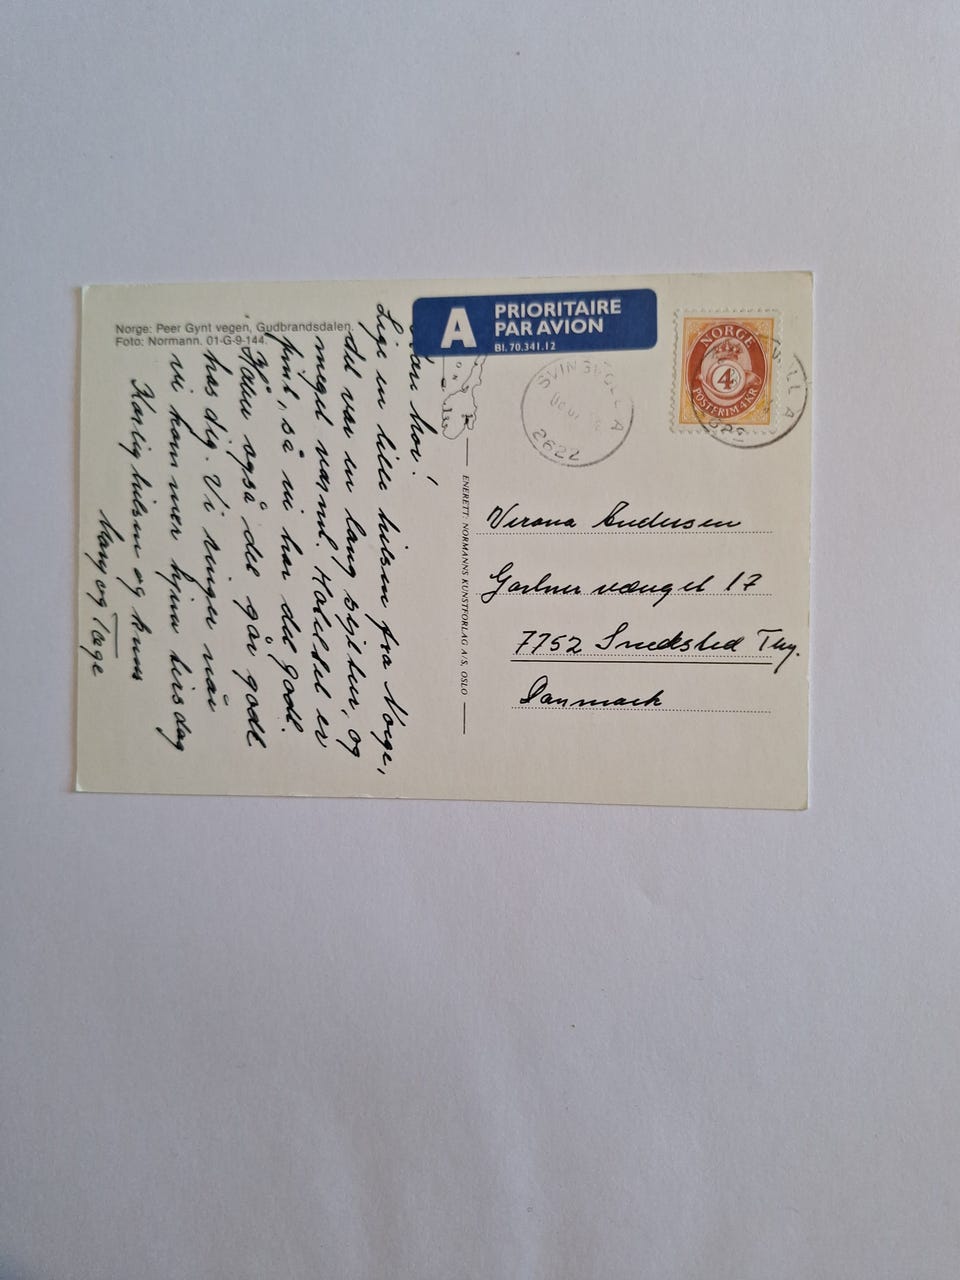 Norge: Peer Gynt vegen, Gudbrandsdalen.
Foto: Normann. 01-G-9-144.
A PRIORITAIRE
PAR AVION
Bl. 70.341.12
NORGE
4
POSTFRIM 4 KR
SVINGVOLL A
2622
ENERETT: NORMANNS KUNSTFORLAG A/S, OSLO
Verona Andersen
Gartnervænget 17
7752 Snedsted Thy.
Danmark
Lige en lille hilsen fra Norge,
det var en lang sejltur, og
meget varmt. Hotellet er
fint, så vi har det godt.
Håber også det går godt
hos dig. Vi ringer når
vi kommer hjem tirsdag
Kærlig hilsen og knus
Mary og Tage